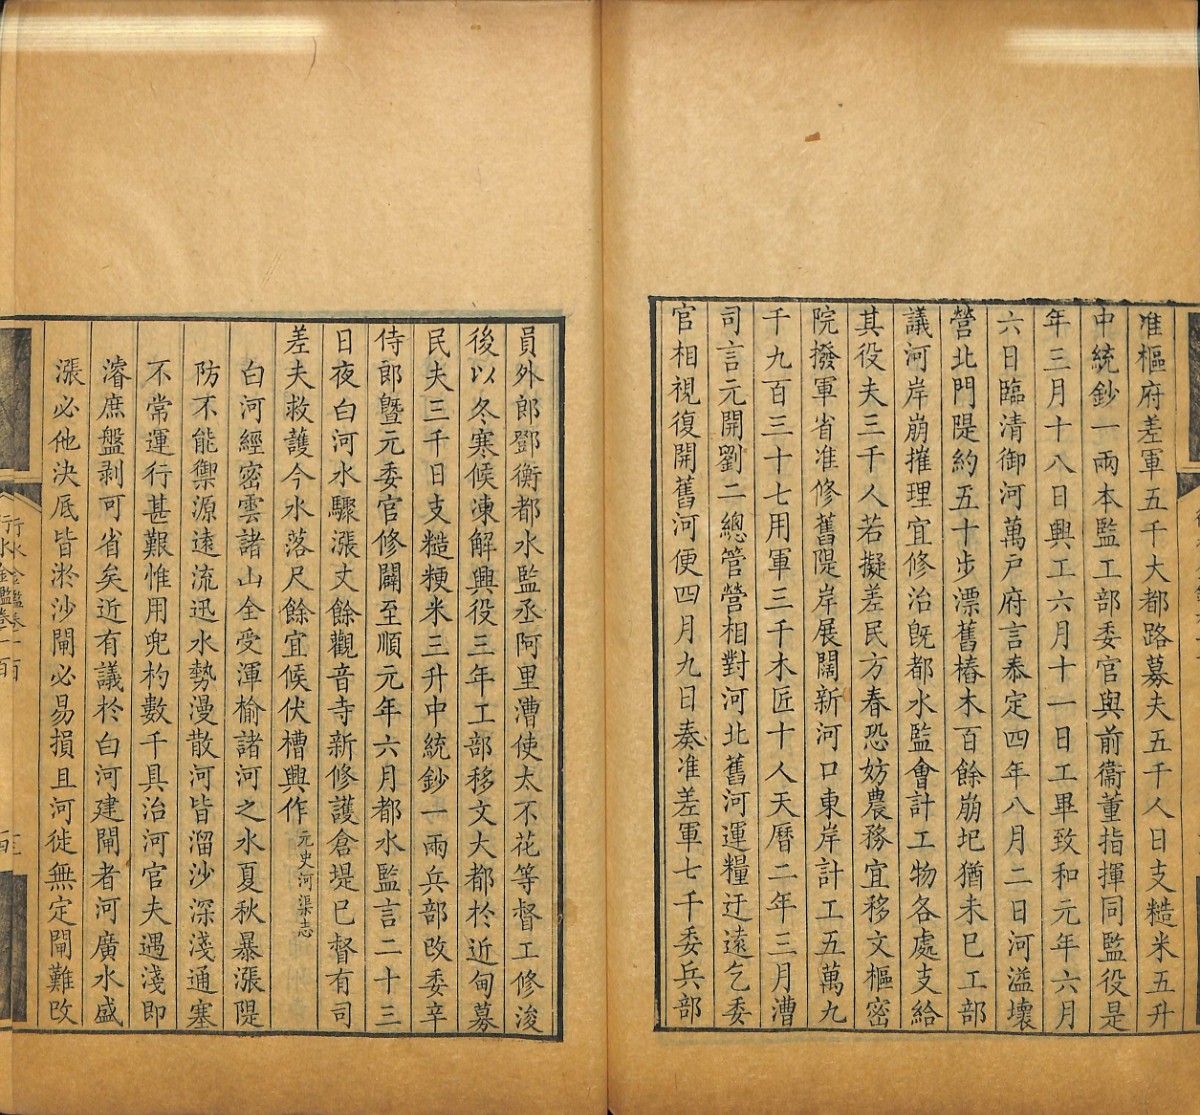 准樞府差軍五千大都路募夫五千人日支糙米五升
中統鈔一兩本監工部委官與前衞董指揮同監役是
年三月十八日興工六月十一日工畢致和元年六月
六日臨清御河萬戸府言泰定四年八月二日河溢壞
營北門隄約五十步漂舊樁木百餘崩圮猶未已工部
議河岸崩摧理宜修治旣都水監會計工物各處支給
其役夫三千人若擬差民方春恐妨農務宜移文樞密
院撥軍省准修舊隄岸展闊新河口東岸計工五萬九
千九百三十七用軍三千木匠十人天曆二年三月漕
司言元開劉二總管營相對河北舊河運糧迂遠乞委
官相視復開舊河便四月九日奏准差軍七千委兵部
員外郎鄧衡都水監丞阿里漕使太不花等督工修浚
後以冬寒候凍解興役三年工部移文大都於近甸募
民夫三千日支糙粳米三升中統鈔一兩兵部改委辛
侍郎曁元委官修闢至順元年六月都水監言二十三
日夜白河水驟漲丈餘觀音寺新修護倉堤已督有司
差夫救護今水落尺餘宜候伏槽興作元史河渠志
白河經密雲諸山全受渾榆諸河之水夏秋暴漲隄
防不能禦源遠流迅水勢漫散河皆溜沙深淺通塞
不常運行甚艱惟用兜杓數千具治河官夫遇淺即
濬庶盤剥可省矣近有議於白河建閘者河廣水盛
漲必他決底皆淤沙閘必易損且河徙無定閘難改
行水金鑑卷一百